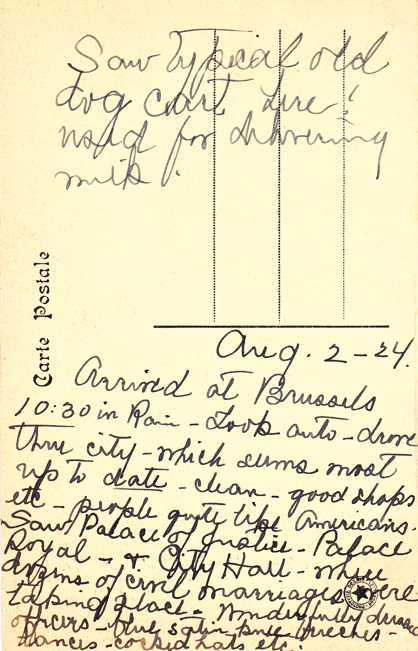 Saw typical old
dog cart here!
used for delivering
milk.
Carte Postale
Aug. 2-24.
Arrived at Brussels
10:30 in Rain - Took auto - drove
thru city - which seems most
up to date - clean - good shops
etc - people quite like Americans.
Saw Palace of Justice - Palace
Royal - & City Hall - where
dozens of civil marriages were
taking place - Wonderfully dressed
officers - blue satin knee breeches -
lances - cocked hats etc.